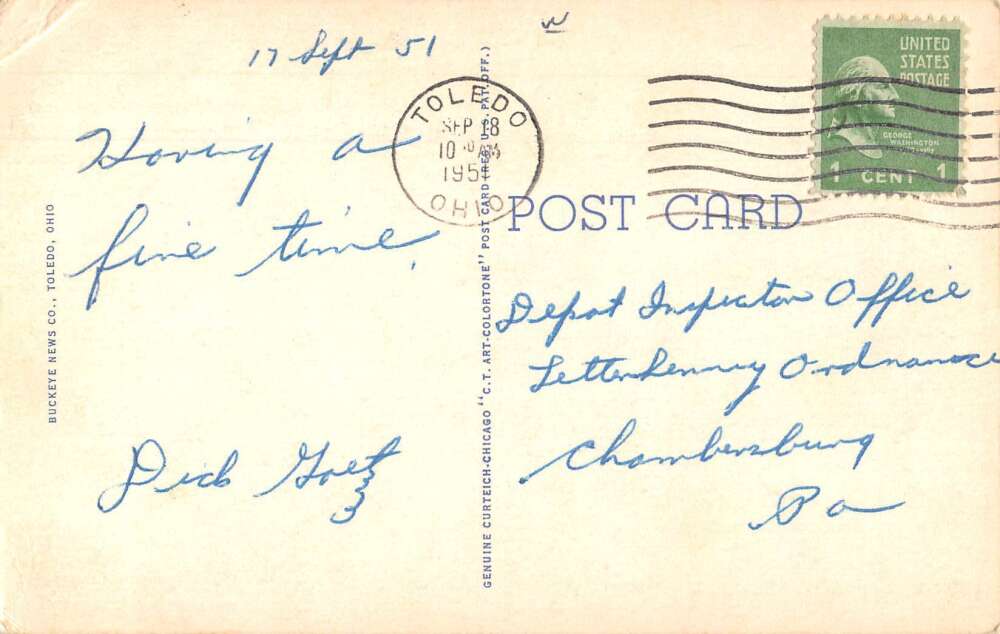 17 Sept 51
Having a
fine time.
Dick Goetz
BUCKEYE NEWS CO., TOLEDO, OHIO
GENUINE CURTEICH-CHICAGO "C.T. ART-COLORTONE" POST CARD (REG. U.S. PAT. OFF.)
TOLEDO
SEP 18
10 AM
1951
OHIO
UNITED
STATES
POSTAGE
GEORGE
WASHINGTON
1 CENT 1
POST CARD
Depot Inspector Office
Letterkenny Ordnance
Chambersburg
Pa